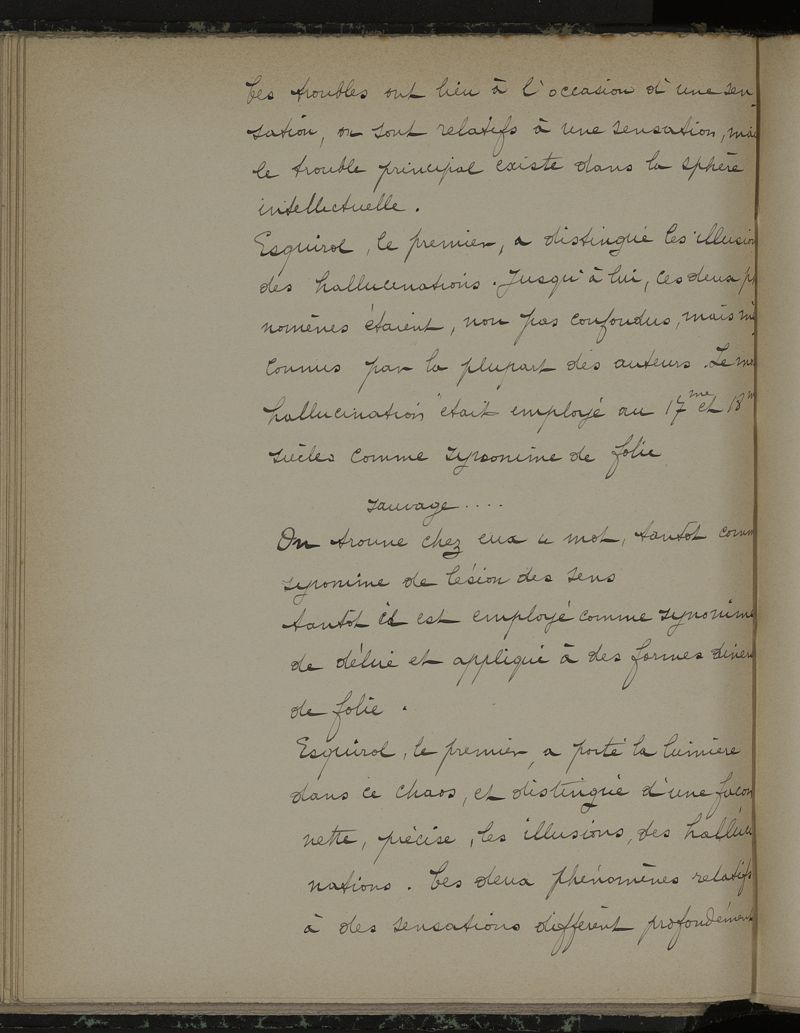 Ces troubles ont lieu à l'occasion d'une sen-
sation, ou sont relatifs à une sensation, mai
le trouble principal existe dans la sphère
intellectuelle.
Esquirol, le premier, a distingué les illusion
des hallucinations. Jusqu'à lui, ces deux ph
nomènes étaient, non pas confondus, mais mé
connus par la plupart des auteurs. Le mo
hallucination" était employé au 17me et 18m
siècles comme synonime de folie
Sauvage....
On trouve chez eux ce mot, tantôt comm
synonime de lésion des sens
tantôt il est employé comme synonime
de délire et appliqué à des formes divers
de folie.
Esquirol, le premier, a porté la lumière
dans ce chaos, et distingué d'une façon
nette, précise, les illusions, des halluci
nations. Ces deux phénomènes relatifs
à des sensations diffèrent profondément